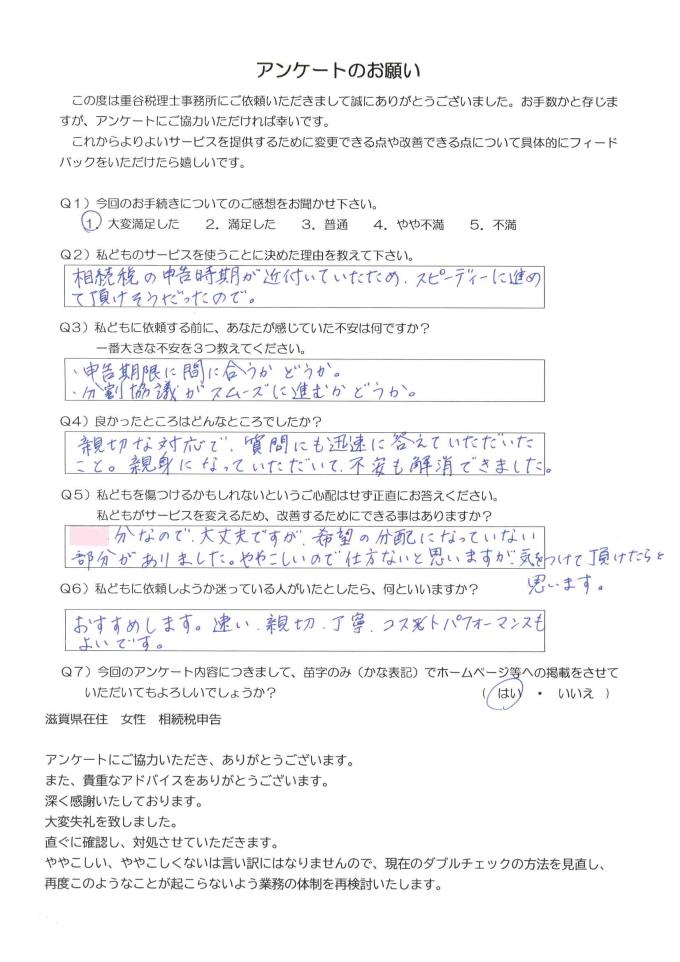 アンケートのお願い
この度は重谷税理士事務所にご依頼いただきまして誠にありがとうございました。お手数かと存じま
すが、アンケートにご協力いただければ幸いです。
これからよりよいサービスを提供するために変更できる点や改善できる点について具体的にフィード
バックをいただけたら嬉しいです。
Q1）今回のお手続きについてのご感想をお聞かせ下さい。
1．大変満足した　2．満足した　3．普通　4．やや不満　5．不満
Q2）私どものサービスを使うことに決めた理由を教えて下さい。
相続税の申告時期が近付いていたため、スピーディーに進め
て頂けそうだったので。
Q3）私どもに依頼する前に、あなたが感じていた不安は何ですか？
一番大きな不安を３つ教えてください。
・申告期限に間に合うかどうか。
・分割協議がスムーズに進むかどうか。
Q4）良かったところはどんなところでしたか？
親切な対応で、質問にも迅速に答えていただいた
こと。親身になっていただいて、不安も解消できました。
Q5）私どもを傷つけるかもしれないというご心配はせず正直にお答えください。
私どもがサービスを変えるため、改善するためにできる事はありますか？
分なので、大丈夫ですが、希望の分配になっていない
部分がありました。ややこしいので仕方ないと思いますが、気をつけて頂けたらと
思います。
Q6）私どもに依頼しようか迷っている人がいたとしたら、何といいますか？
おすすめします。速い、親切、丁寧、コストパフォーマンスも
よいです。
Q7）今回のアンケート内容につきまして、苗字のみ（かな表記）でホームページ等への掲載をさせて
いただいてもよろしいでしょうか？　（　はい　・　いいえ　）
滋賀県在住　女性　相続税申告
アンケートにご協力いただき、ありがとうございます。
また、貴重なアドバイスをありがとうございます。
深く感謝いたしております。
大変失礼を致しました。
直ぐに確認し、対処させていただきます。
ややこしい、ややこしくないは言い訳にはなりませんので、現在のダブルチェックの方法を見直し、
再度このようなことが起こらないよう業務の体制を再検討いたします。